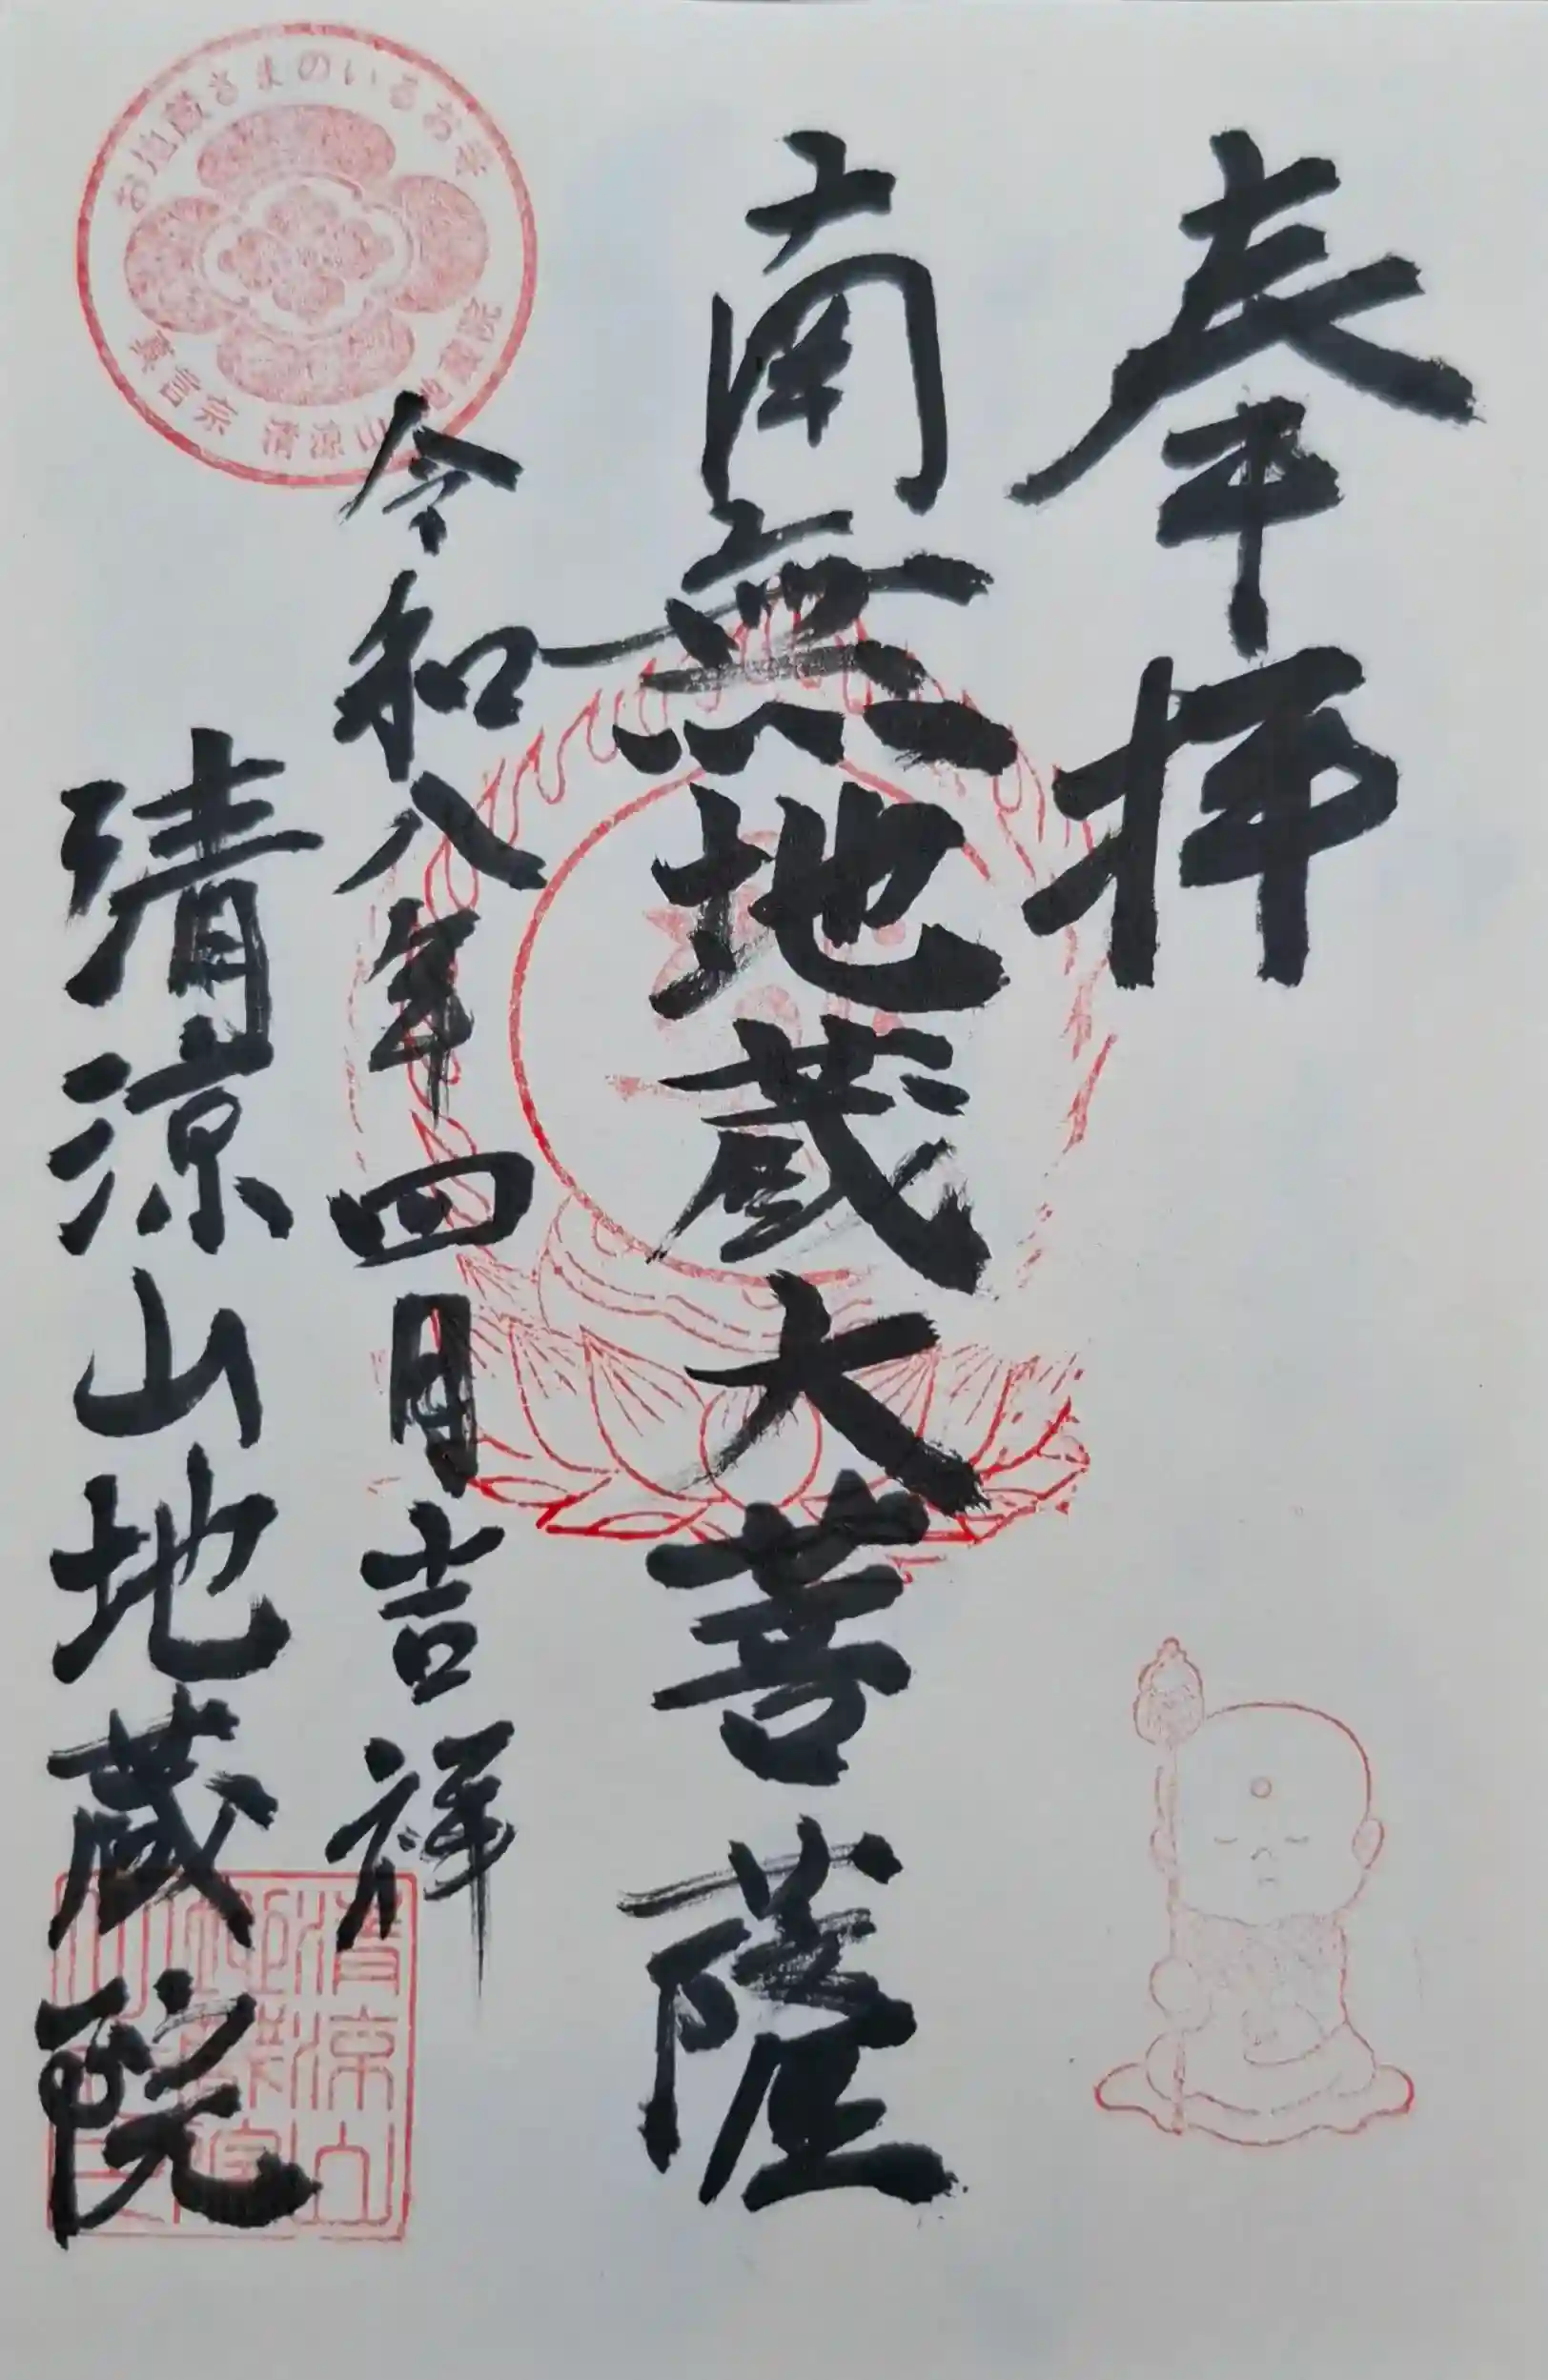 奉拝
南無地蔵大菩薩
令和八年四月吉祥
清涼山地蔵院
お地蔵さまのいるお寺
真言宗 清涼山 地蔵院